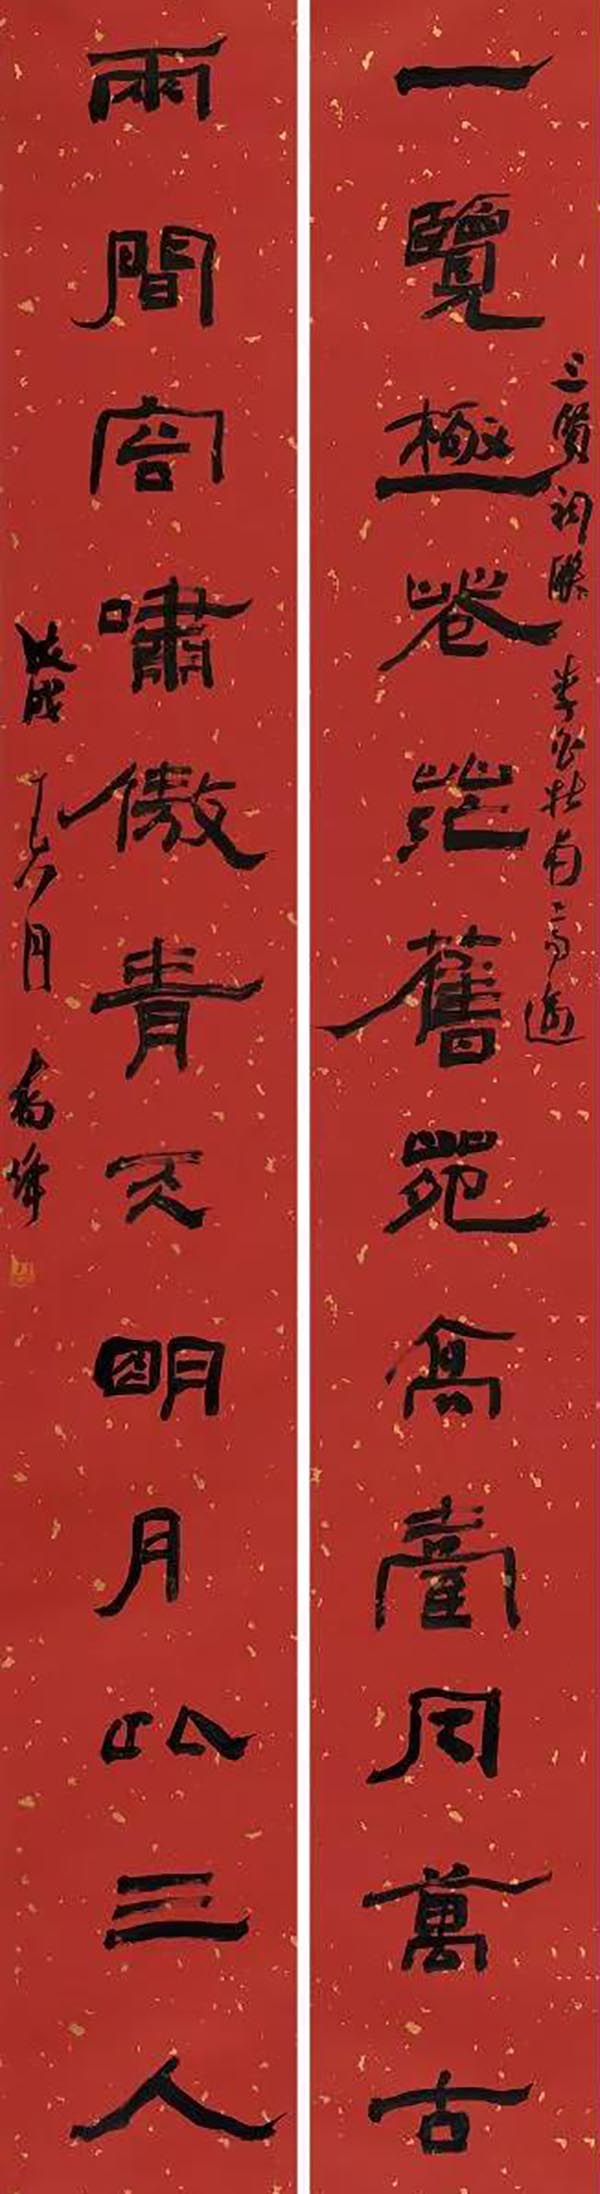 一覽極蒼茫舊苑高臺同萬古
三賢祠聯 李白杜甫高適
兩間容嘯傲青天明月此三人
戊戌六月